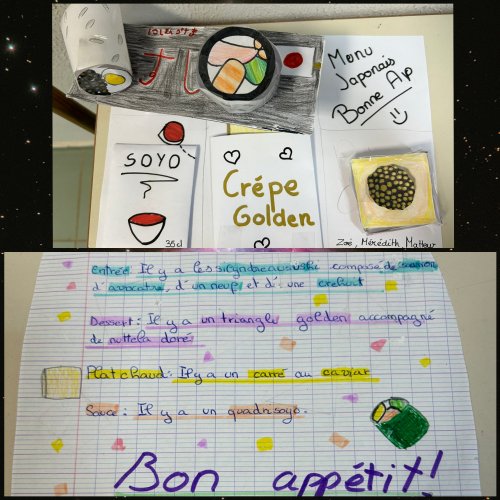 すし
Menu
Japonais
Bonne Ap
SOYO
35cl
Crêpe
Golden
Zoé, Mérédith, Matteur
Entrée: Il y a les composé de
d'avocatre, d'un neuf et d'une
Dessert: Il y a un triangle golden accompagné
de nuttela doré
Plat chaud: Il y a un carré au caviar
Sauce: Il y a un quadrisoyo.
Bon appétit!